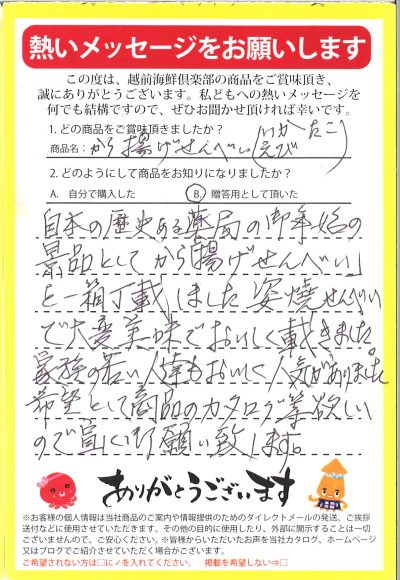 熱いメッセージをお願いします
この度は、越前海鮮倶楽部の商品をご賞味頂き、
誠にありがとうございます。私どもへの熱いメッセージを
何でも結構ですので、ぜひお聞かせ頂ければ幸いです。
1. どの商品をご賞味頂きましたか?
商品名: から揚げせんべい(いかたこえび)
2. どのようにして商品をお知りになりましたか?
A. 自分で購入した B. 贈答用として頂いた
日本の歴史ある薬局の御年始の
景品として から揚げせんべい」
を一箱丁載しました 姿焼せんべい
で大変美味でおいしく載きました。
家族の若い人達もおいしく人気がありました
希望として商品のカタログ等欲しい
ので宜しくお願い致します。
ありがとうございます
※お客様の個人情報は当社商品のご案内や情報提供のためのダイレクトメールの発送、ご挨拶
送付などに使用させていただきます。その他の目的に使用したり、外部に開示することは一切
ございませんので、ご安心ください。※皆様からいただいたお声を当社カタログ、ホームページ
又はブログでご紹介させていただく場合がございます。
ご希望されない方は□に✓を入れてください。 掲載を希望しない⇒□